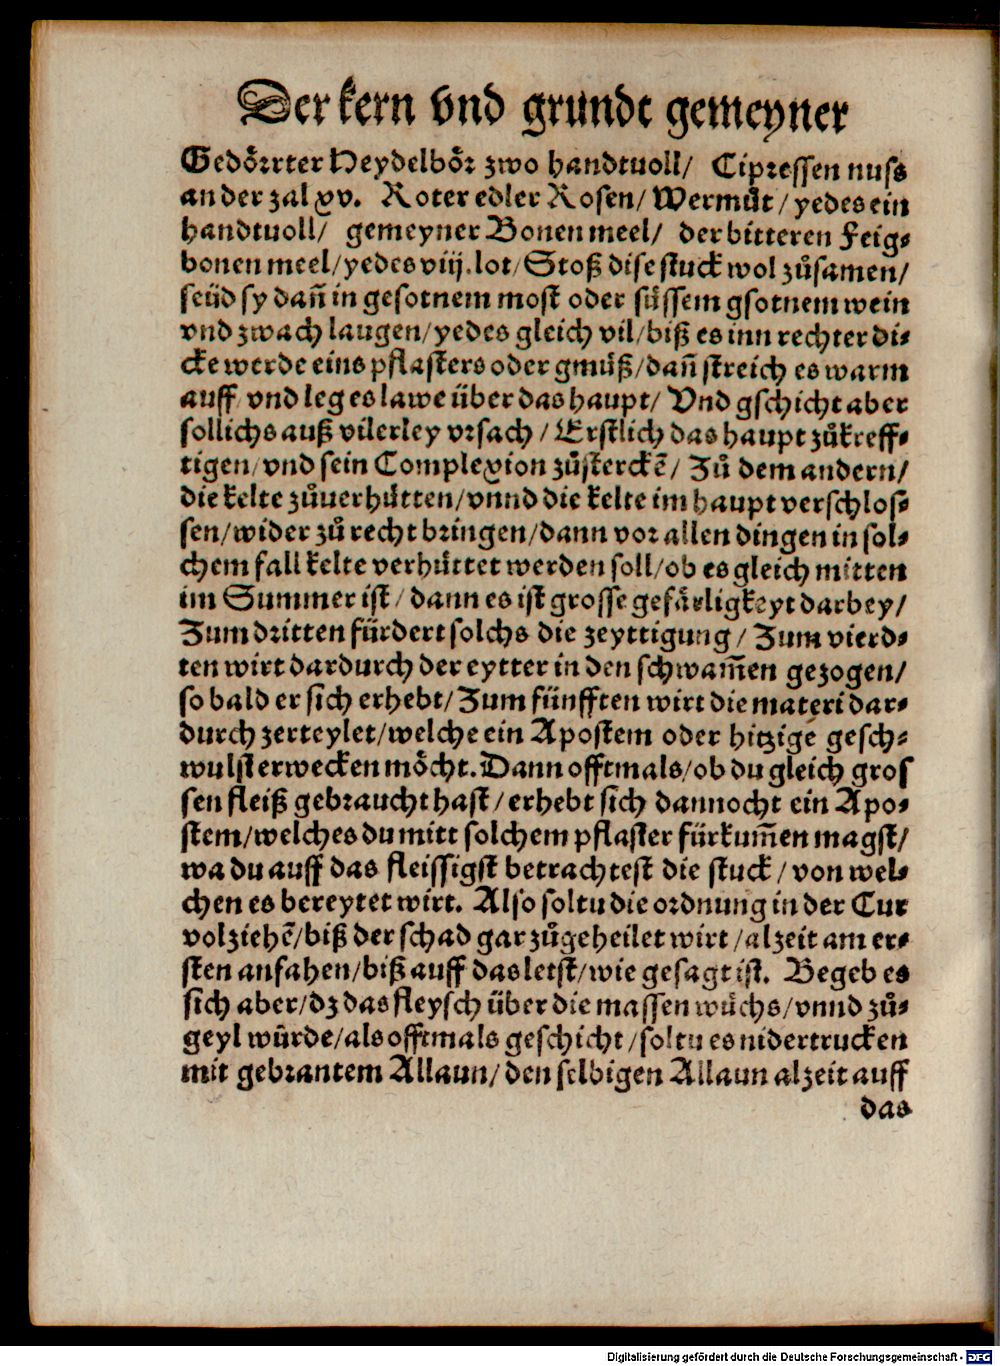 Der kern vnd grundt gemeyner
Gedoͤrrter Heydelboͤr zwo handtuoll/ Cipressen nuss
an der zal xv. Roter edler Rosen/ Wermuͦt/ yedes ein
handtuoll/ gemeyner Bonen meel/ der bitteren Feig⸗
bonen meel/ yedes viij. lot/ Stoß dise stuck wol zuͦsamen/
seüd sy dañ in gesotnem most oder suͤssem gsotnem wein
vnd zwach laugen/ yedes gleich vil/ biß es inn rechter di⸗
cke werde eins pflasters oder gmuͤß/ dañ streich es warm
auff/ vnd leg es lawe über das haupt/ Vnd gschicht aber
sollichs auß vilerley vrsach/ Erstlich das haupt zuͦkreff⸗
tigen/ vnd sein Complexion zuͦsterckẽ/ Zuͦ dem andern/
die kelte zuͦuerhuͤtten/ vnnd die kelte im haupt verschlos⸗
sen/ wider zuͦ recht bringen/ dann vor allen dingen in sol⸗
chem fall kelte verhuͤttet werden soll/ ob es gleich mitten
im Summer ist/ dann es ist grosse gefaͤrligkeyt darbey/
Zum dritten fürdert solchs die zeyttigung/ Zum vierd⸗
ten wirt dardurch der eytter in den schwam̃en gezogen/
so bald er sich erhebt/ Zum fünfften wirt die materi dar⸗
durch zerteylet/ welche ein Apostem oder hitzige gesch⸗
wulst erwecken moͤcht. Dann offtmals/ ob du gleich gros
sen fleiß gebraucht hast/ erhebt sich dannocht ein Apo⸗
stem/ welches du mitt solchem pflaster fürkum̃en magst/
wa du auff das fleissigst betrachtest die stuck/ von wel⸗
chen es bereytet wirt. Also soltu die ordnung in der Cur
volziehẽ/ biß der schad gar zuͦgeheilet wirt/ alzeit am er⸗
sten anfahen/ biß auff das letst/ wie gesagt ist. Begeb es
sich aber/ dz das fleysch über die massen wuͤchs/ vnnd zuͦ⸗
geyl würde/ als offtmals geschicht/ soltu es nidertrucken
mit gebrantem Allaun/ den selbigen Allaun alzeit auff
das
Digitalisierung gefördert durch die Deutsche Forschungsgemeinschaft - DFG